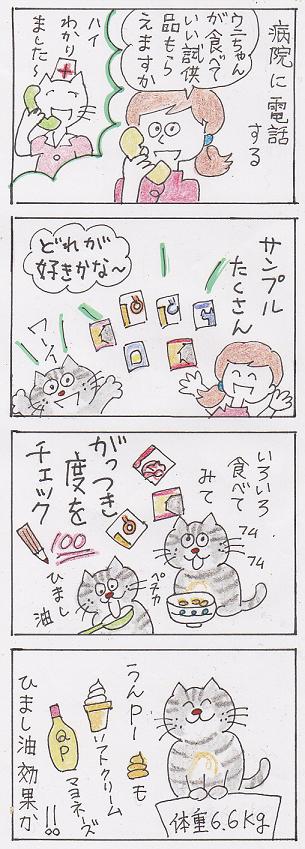 病院に電話
する
ウニちゃん
が食べて
いい試供
品もら
えますか
ハイ
わかり
ました〜
サンプル
たくさん
どれが
好きかな〜
ワーイ
いろいろ
食べて
みて
がっつき
度を
チェック
100
ひまし
油
うんPー
も
ソフトクリーム
マヨネーズ
QP
ひまし油効果か!!
体重6.6kg